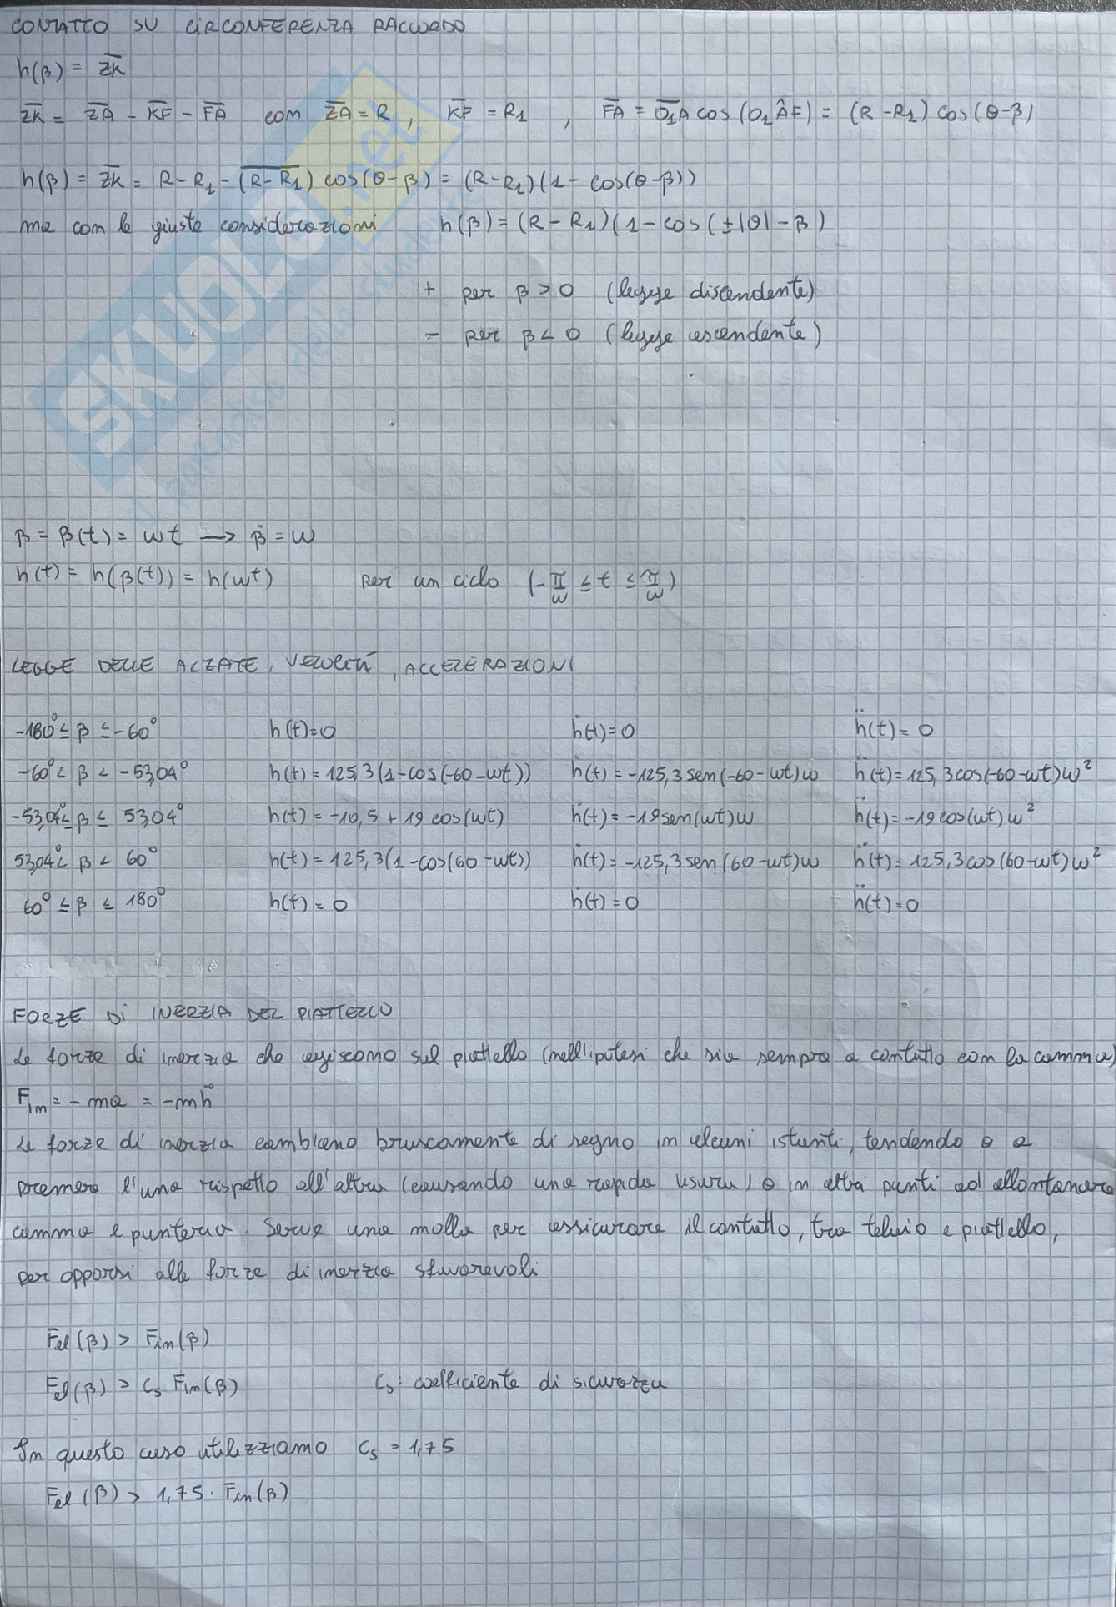 CONTATTO SU CIRCONFERENZA RACCORDO
h(β) = Z̅K̅
Z̅K̅ = Z̅A̅ - K̅F̅ - F̅A̅ com Z̅A̅ = R , K̅F̅ = R₁ , F̅A̅ = O̅₁A̅ cos(O₁ÂF) = (R-R₁) cos(θ-β)
h(β) = Z̅K̅ = R-R₁-(R-R₁) cos(θ-β) = (R-R₁)(1-cos(θ-β))
ma con le giuste considerazioni h(β) = (R-R₁)(1-cos(±|θ|-β)
+ per β>0 (legge discendente)
- per β<0 (legge ascendente)
β = β(t) = ωt → β̇ = ω
h(t) = h(β(t)) = h(ωt) per un ciclo (-π/ω ≤ t ≤ π/ω)
LEGGE DELLE ALZATE, VELOCITÀ, ACCELERAZIONI
-180° ≤ β ≤ -60° h(t)=0 ḣ(t)=0 ḧ(t)=0
-60° < β < -53,04° h(t)=125,3(1-cos(-60-ωt)) ḣ(t)=-125,3 sen(-60-ωt)ω ḧ(t)=125,3cos(-60-ωt)ω²
-53,04° ≤ β ≤ 53,04° h(t)=-10,5+19 cos(ωt) ḣ(t)=-19sen(ωt)ω ḧ(t)=-19cos(ωt)ω²
53,04° < β < 60° h(t)=125,3(1-cos(60-ωt)) ḣ(t)=-125,3sen(60-ωt)ω ḧ(t)=125,3cos(60-ωt)ω²
60° ≤ β ≤ 180° h(t)=0 ḣ(t)=0 ḧ(t)=0
FORZE DI INERZIA DEL PIATTELLO
Le forze di inerzia che agiscono sul piattello (nell'ipotesi che sia sempre a contatto con la camma)
Fin = -ma = -mḧ
Le forze di inerzia cambiano bruscamente di segno in alcuni istanti, tendendo o a
premere l'una rispetto all'altra (causando una rapida usura) o in altri punti ad allontanare
camma e punteria. Serve una molla per assicurare il contatto, tra telaio e piattello,
per opporsi alle forze di inerzia sfavorevoli
Fel(β) > Fin(β)
Fel(β) > Cs Fin(β) Cs: coefficiente di sicurezza
In questo caso utilizziamo Cs = 1,75
Fel(β) > 1,75 · Fin(β)
SKUOLA.net